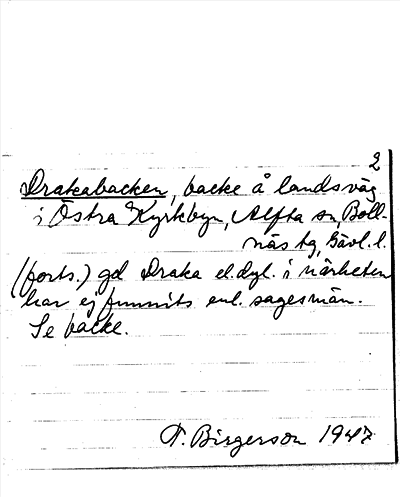 2
Drakabacken, backe å landsväg
i Östra Kyrkbyn, Alfta sn, Boll-
näs tg, Gävl. l.
(forts.) gd Draka el.dyl. i närheten
har ej funnits enl. sagesmän.
Se backe.
F. Birgerson 1947